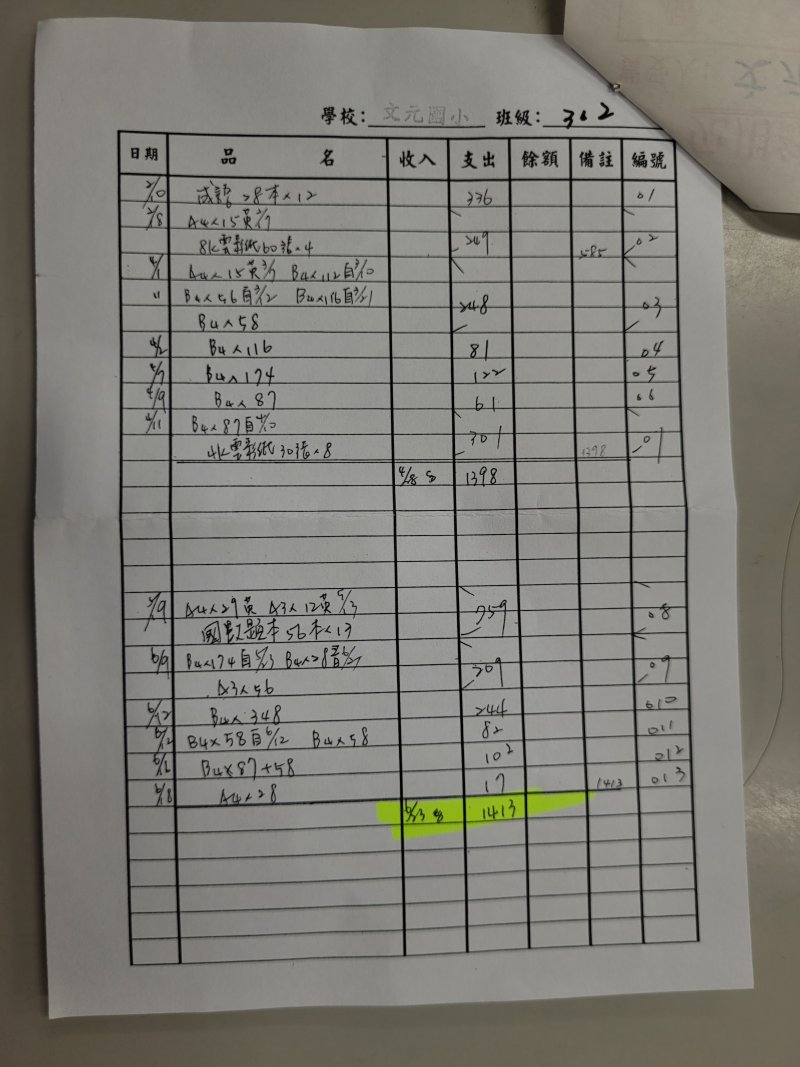 學校: 文元國小 班級: 302
日期 品名 收入 支出 餘額 備註 編號
2/10 成語28本×12 336 01
2/8 A4×15英2/7
8K雲彩紙60張×4 249 585 02
4/1 A4×15英3/7 B4×112自3/10
" B4×56自3/12 B4×116自3/21
B4×58 248 03
4/2 B4×116 81 04
4/7 B4×174 122 05
4/9 B4×87 61 06
4/11 B4×87自4/10
4K雲彩紙30張×8 301 1398 07
4/28 1398
5/9 A4×29英 A3×12英5/13
國數題本56本×13 359 08
6/9 B4×174自 B4×28
A3×56 309 09
6/12 B4×348 244 010
6/12 B4×58自6/12 B4×58 82 011
6/16 B4×87+58 102 012
6/18 A4×28 17 1413 013
6/23 1413
文元